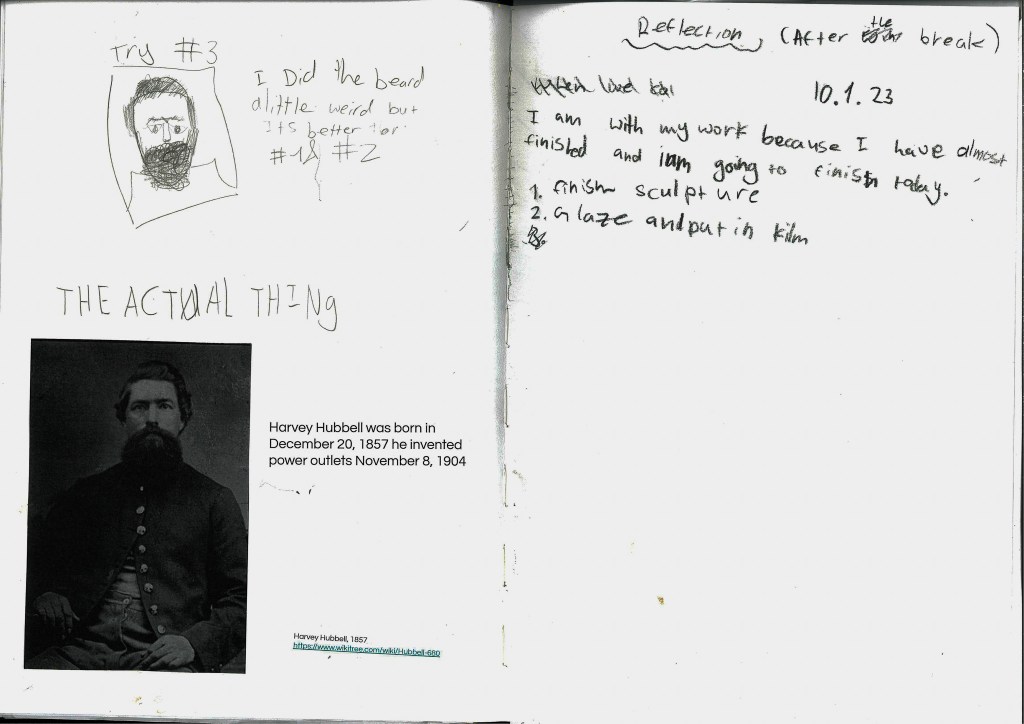 Try #3
I Did the beard
alittle weird but
Its better for
#1& #2
THE ACTUAL THING
Harvey Hubbell was born in
December 20, 1857 he invented
power outlets November 8, 1904
Harvey Hubbell, 1857
https://www.wikitree.com/wiki/Hubbell-680
Reflection (After the break)
10.1.23
I am with my work because I have almost
finished and iam going to finish today.
1. finish sculpture
2. glaze andput in kilm